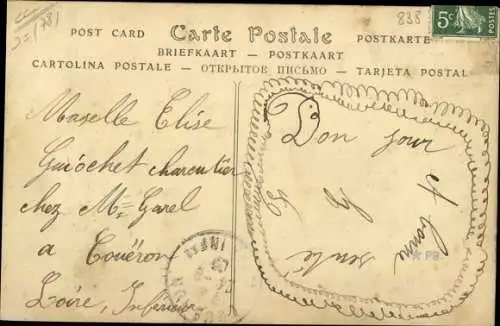 838
5c
POST CARD
Carte Postale
POSTKARTE
BRIEFKAART — POSTKAART
CARTOLINA POSTALE — ОТКРЫТОЕ ПИСЬМО — TARJETA POSTAL
Maselle Elise
Guiochet charentier
chez Mr Garel
a Couëron
Loire, Inférieure
Bon jour
et bonne
santé
INFRE
PB